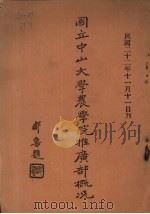 民國二十二年十一月十一日刊
國立中山大學農學院推廣部概況
鄒魯題